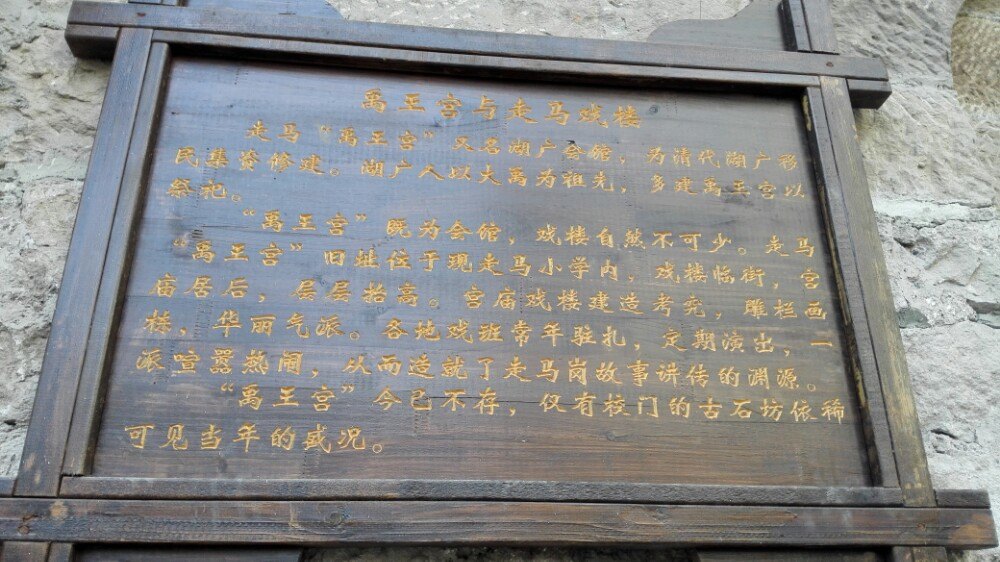 禹王宫与走马戏楼
走马“禹王宫”又名湖广会馆，为清代湖广移
民集资修建。湖广人以大禹为祖先，多建禹王宫以
祭祀。
“禹王宫”既为会馆，戏楼自然不可少。走马
“禹王宫”旧址位于现走马小学内，戏楼临街，宫
庙居后，层层抬高。宫庙戏楼建造考究，雕栏画
栋，华丽气派。各地戏班常年驻扎，定期演出，一
派喧嚣热闹，从而造就了走马岗故事讲传的渊源。
“禹王宫”今已不存，仅有校门的古石坊依稀
可见当年的盛况。